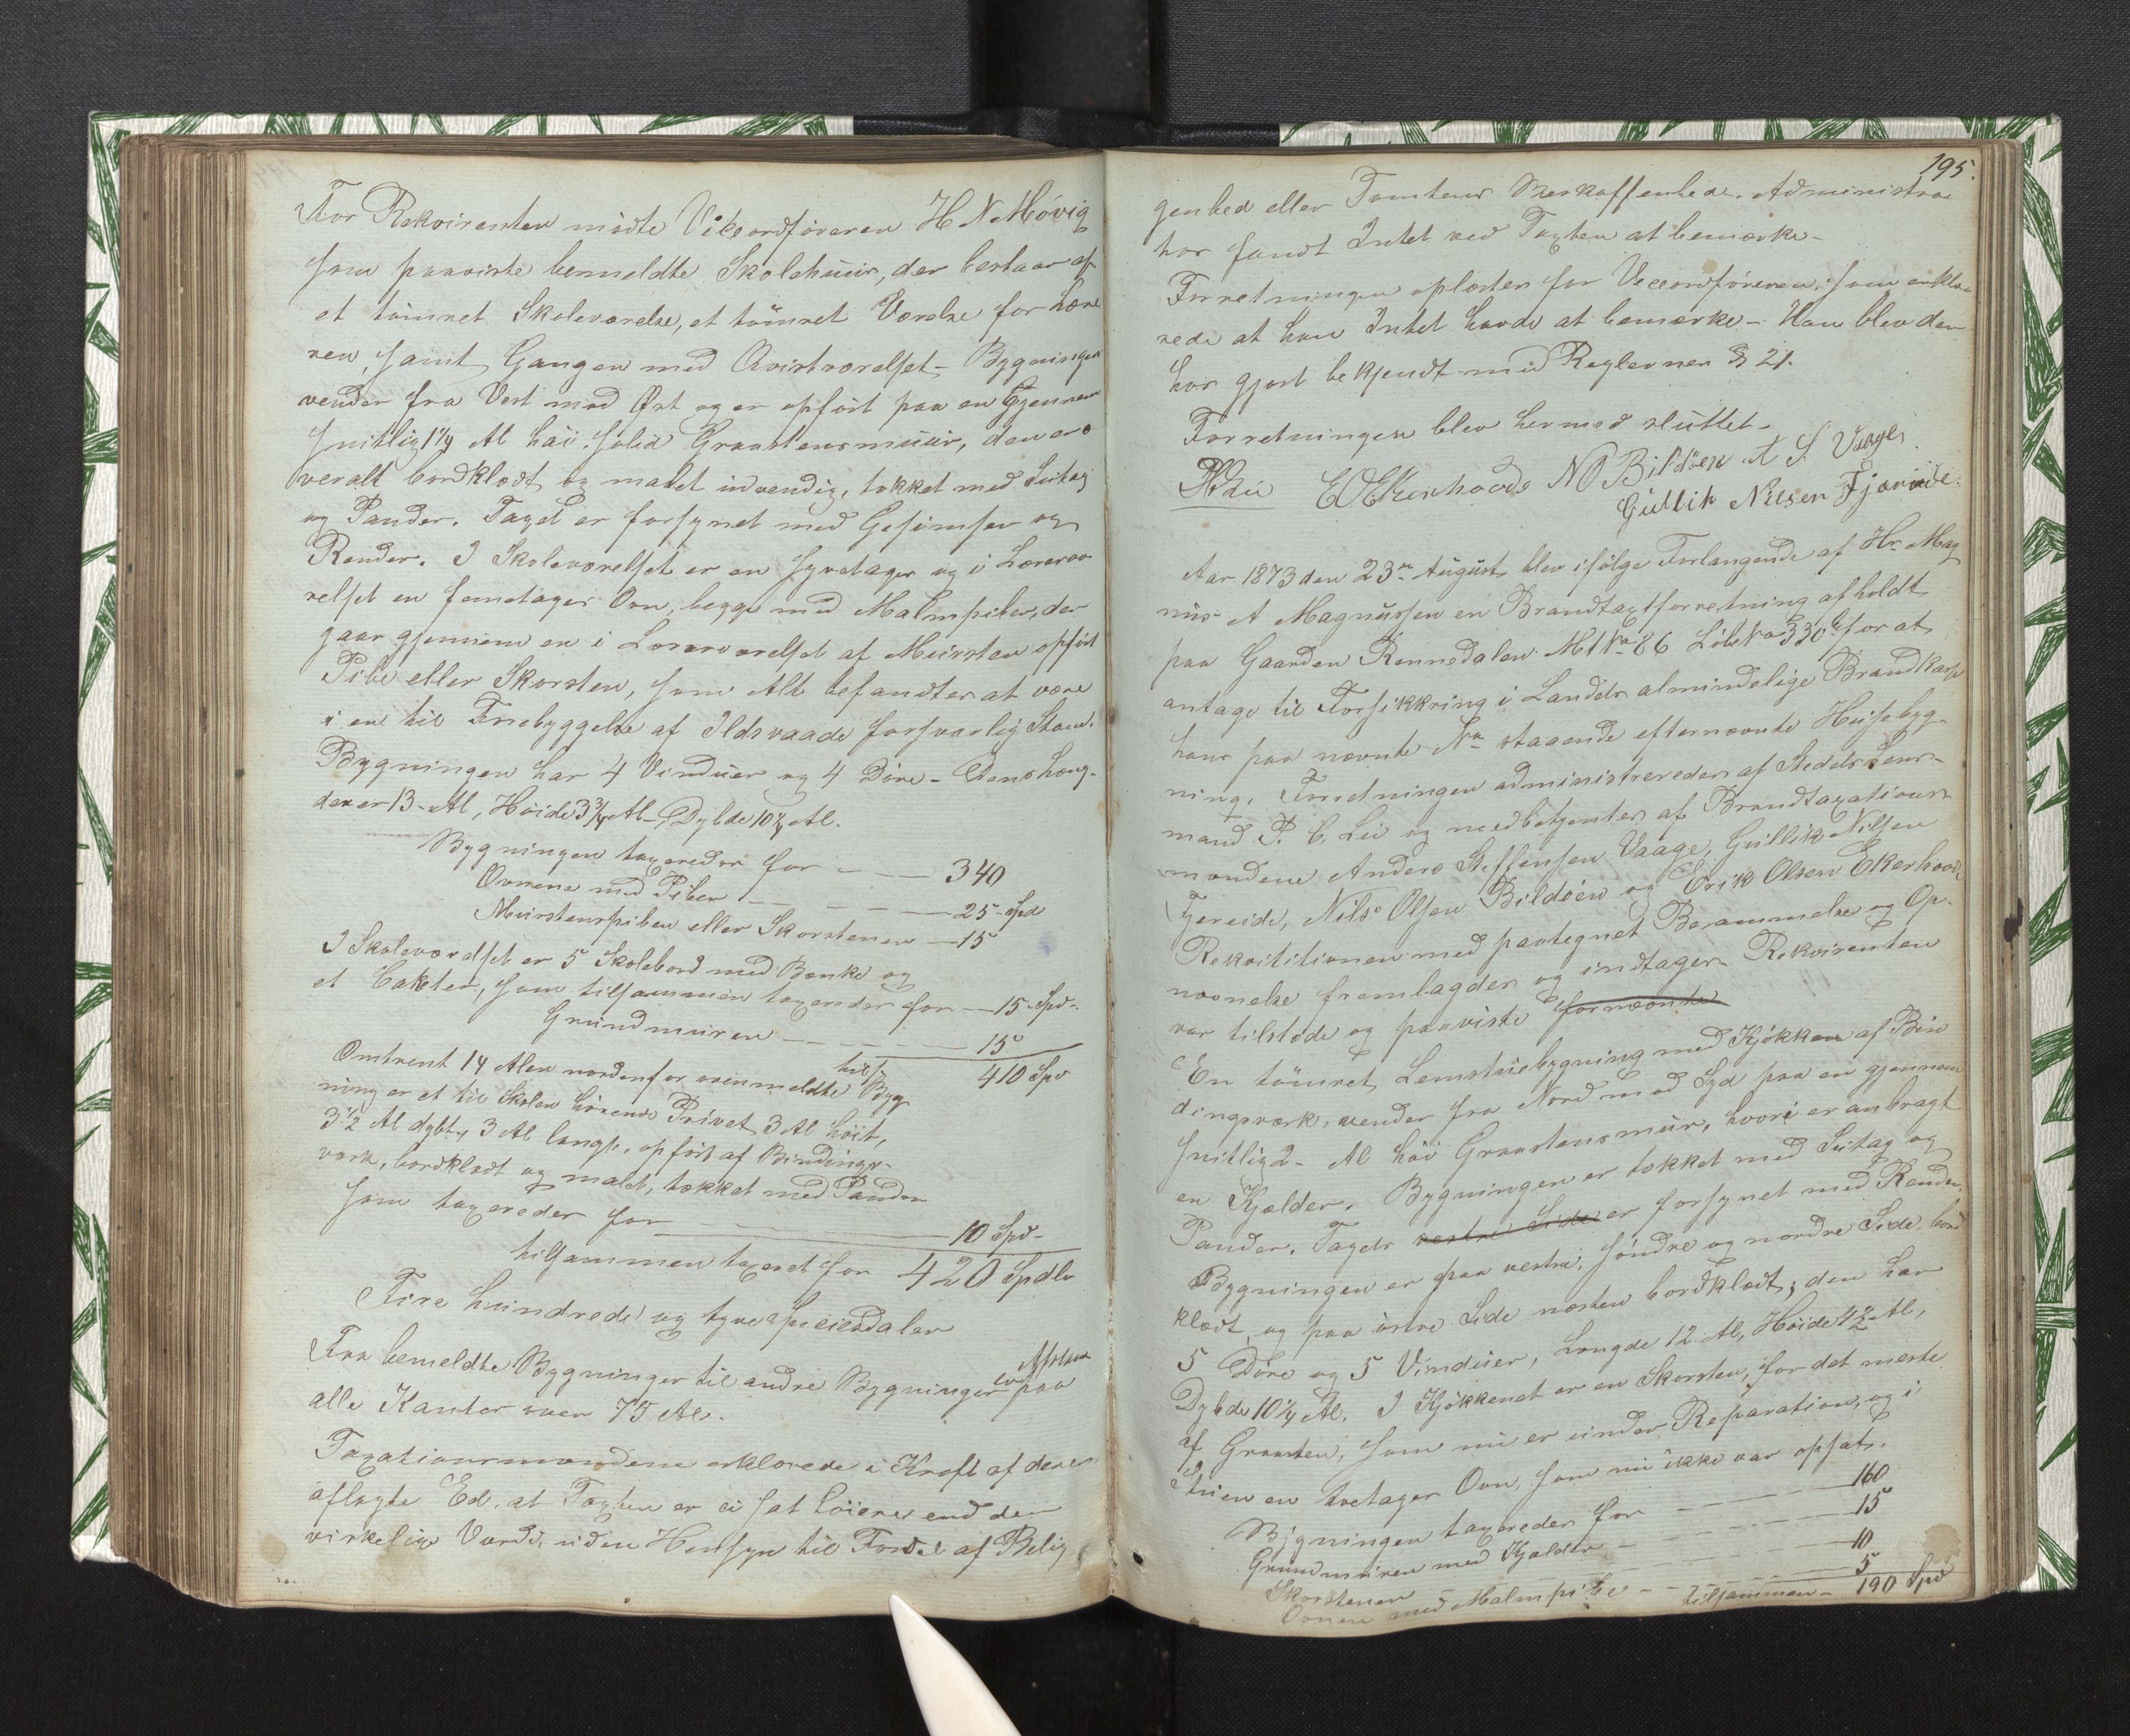 For Rekvirenten mödte Viceordföreren H N Mövig
som paaviste bemeldte Skolehuus, der bestaar af
et tömret Skoleværelse, et tömret Værelse for Lære
ren, samt Gangen med Qvistværelset - Bygningen
vender fra Vest mod Øst og er opfört paa en Gjennem
snitlig 1¼ Al höi solid Graastensmuur, den er o
veralt bordklædt og malet indvendig, tækket med Sutag
og Pander. Taget er forsynet med Gesimser og
Render. I Skoleværelset er en fyretages og i Læreræ
relset en femetages Ovn, begge med Malmpiber, der
gaar gjennem en i Læreværelset af Mursten opfört
Pibe eller Skorsten, som Alt befandtes at være
i en til Forebyggelse af Ildsvaade forsvarlig Stand.
Bygningen har 4 Vinduer og 4 Döre - Dens Læng-
de er 13 - Al, Höide 3¾ Al - Dybde 10¼ Al.
Bygningen taxeredes for - - - 340
Ovnene med Piber - - - - 25 - Spd
Murstenspiben eller Skorstenen - 15
I Skoleværelset er 5 Skolebord med Bænke og
et Catheter, som tilsammen taxeredes for - - 15 - Spd -
Grundmuren - - - - - 15
tils 410 Spd
Omtrent 14 Alen nordenfor ovenmeldte Byg
ning er et til Skolen hörende Privet 3 Al höit,
3½ Al dybt, 3 Al langt, opfört af Bindings-
værk, bordklædt og malet, tækket med Pander
som taxeredes for - - - - 10 Spd -
tilsammen taxeret for 420 Spdlr
Fire hundrede og tyve Speciedaler
Fra bemeldte Bygninger til andre Bygninger er Afstand paa
alle Kanter over 75 Al.
Taxationsmændene erklærede i Kraft af deres
aflagte Ed, at Taxten er ei sat höiere end den
virkelige Værdi, uden Hensyn til Fordel af Belig
195.
genhed eller Tomtens Beskaffenhed. Administra
tor fandt Intet ved Taxten at bemærke -
Forretningen oplæstes for Viceordföreren, som erklæ
rede at han Intet havde at bemærke - Han blev der
hos gjort bekjendt med Reglernes § 21.
Forretningen blev hermed sluttet -
P Liu E O Ekerhovd N O Bildöen A S Vaage
Gullik Nilsen Fjæreide.
Aar 1873 den 23de August blev ifölge Forlangende af Hr. Mag
nus A Magnussen en Brandtaxtforretning afholdt
paa Gaarden Rennedalen M N 86 Löbe No 330 b for at
antage til Forsikkring i Landets almindelige Brandkasse
hans paa nævnte No staaende efternævnte Husebyg-
ning. Forretningen administreredes af Stedets Lens-
mand P. C. Liu og medbetjentes af Brandtaxations
mændene Anders Steffensen Vaage, Gullik Nilsen
Fjereide, Nils Olsen Bildöen og Erik Olsen Ekerhovd
Rekvisitionen med paategnet Berammelse og Op-
nævnelse fremlagdes og indtages. Rekvirenten
var tilstede og paaviste fornævnte
En tömret Lemstuebygning med Kjökken af Bin
dingsværk, vender fra Nord mod Syd paa en gjennem
snitlig 2 - Al höi Graastensmur, hvori er anbragt
en Kjælder. Bygningen er tækket med Sutag og
Pander. Tagets vestre Side er forsynet med Render,
Bygningen er paa vestre, söndre og nordre Side bord
klædt, og paa östre Side næsten bordklædt; den har
5 Döre og 5 Vinduer, Længde 12 Al, Höide 4½ Al,
Dybde 10¼ Al. I Kjökkenet er en Skorsten, for det meste
af Graasten, som nu er under Reparation, og i
Stuen en tretages Ovn, som nu ikke var opsat.
Bygningen taxeredes for - - - 160
Grundmuren med Kjælder - - - 15
Skorstenen - - - 10
Ovnen med Malmpibe - - - 5
tilsammen - 190 Spd